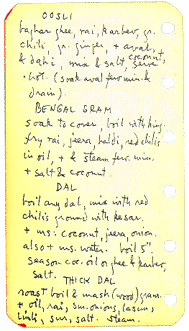 OOSLI
baghar ghee, rai, karbev, gr.
chili, gr. ginger, + avral,
& dahi, mix & salt, coconut, serve
hot. (soak aval few min. &
drain).
BENGAL GRAM
soak to cover, boil with hing
fry rai, jeera, haldi, red chilis
in oil, + & steam few min.
+ salt & coconut.
DAL
boil any dal, mix with red
chilis ground with kesar.
+ ms. coconut, jeera, onion.
also + ms. water. boil 5".
season coc. oil or ghee & karbev,
salt.
THICK DAL
roast boil & mash (wood) gram.
+ oil, rai, sm. onions, lasun,
limbi, sm, salt. steam.